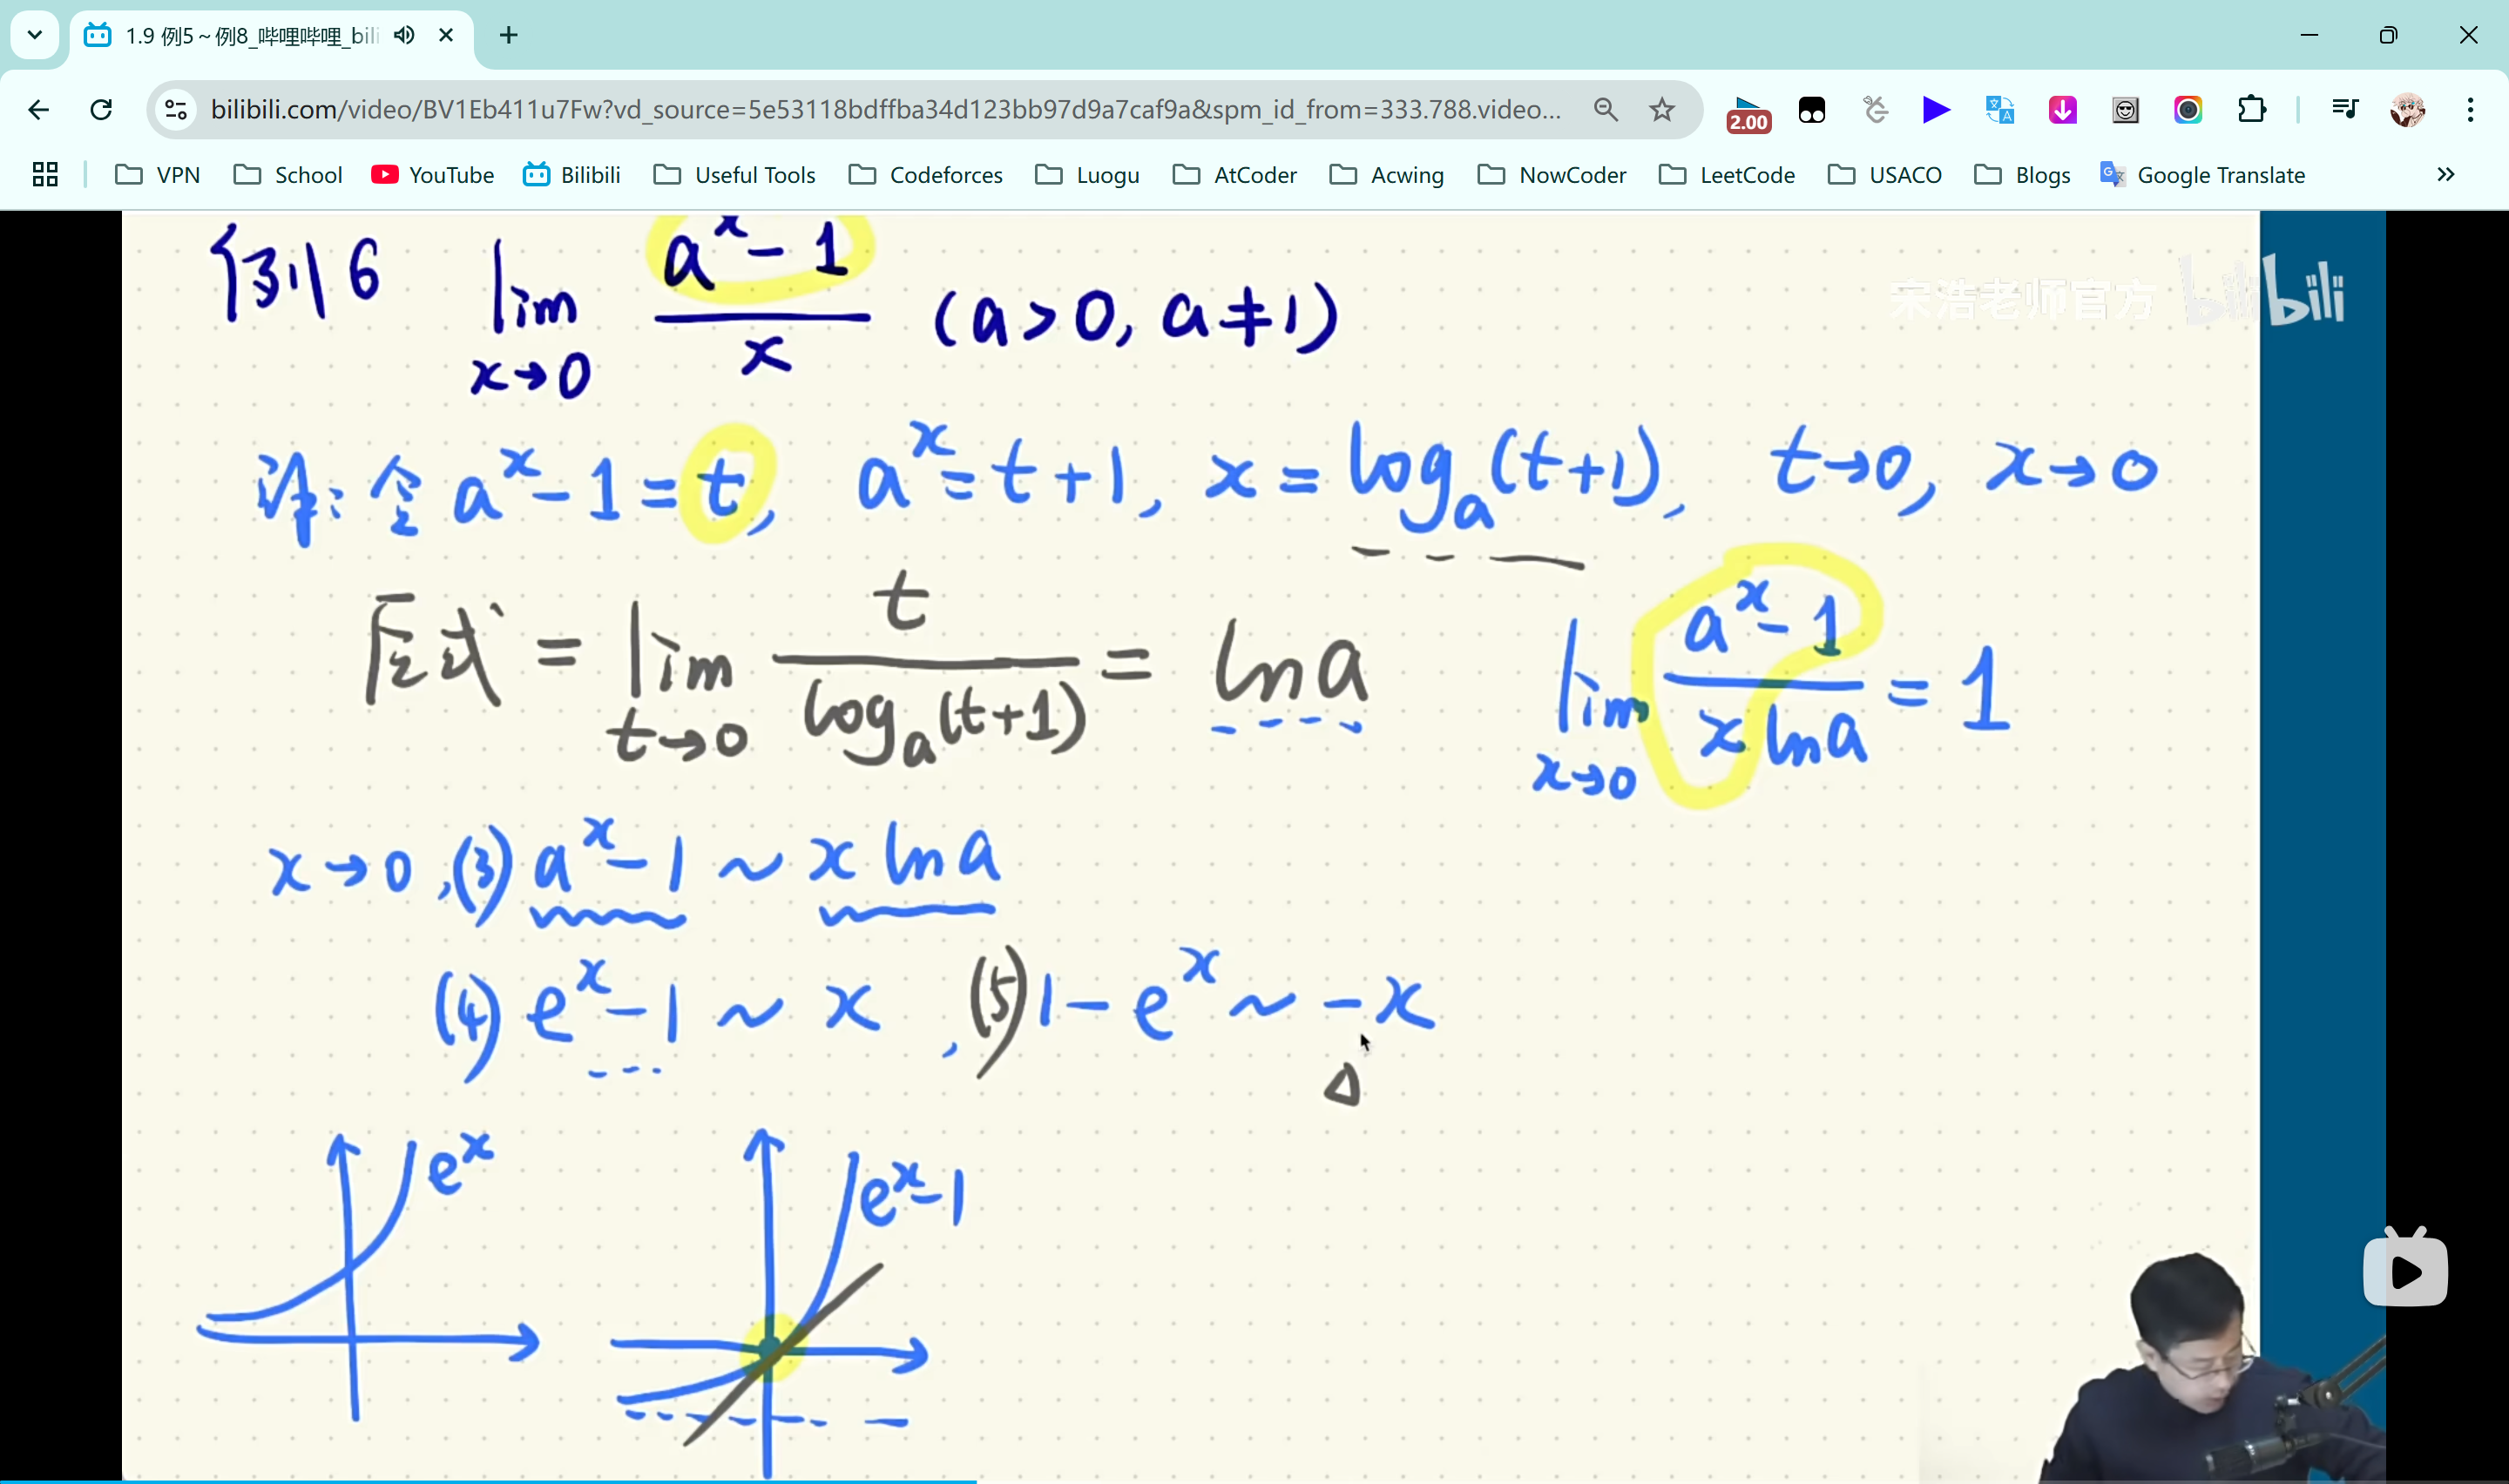 1.9 例5～例8_哔哩哔哩_bili
bilibili.com/video/BV1Eb411u7Fw?vd_source=5e53118bdffba34d123bb97d9a7caf9a&spm_id_from=333.788.video...
2.00
VPN School YouTube Bilibili Useful Tools Codeforces Luogu AtCoder Acwing NowCoder LeetCode USACO Blogs Google Translate
宋浩老师官方 bilibili
例6 lim x→0 (a^x - 1)/x (a>0, a≠1)
译: 令 a^x - 1 = t, a^x = t+1, x = log_a(t+1), t→0, x→0
原式 = lim t→0 t/log_a(t+1) = ln a lim x→0 (a^x - 1)/(x ln a) = 1
x→0, (3) a^x - 1 ~ x ln a
(4) e^x - 1 ~ x, (5) 1 - e^x ~ -x
Δ
e^x e^x-1